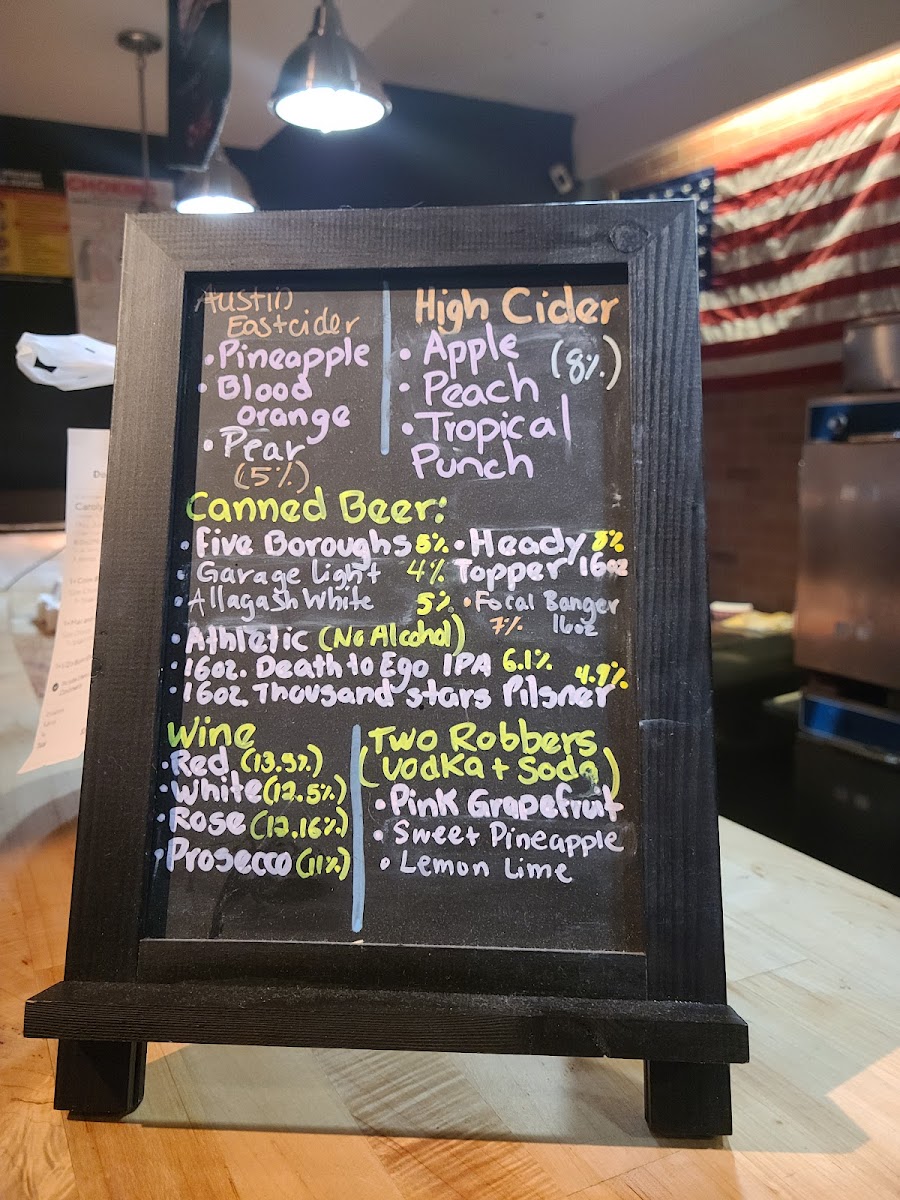 CHOKING
Austin
Eastcider
• Pineapple
• Blood
orange
• Pear
(5%)
High Cider
• Apple (8%)
• Peach
• Tropical
Punch
Canned Beer:
• Five Boroughs 5%
Garage Light 4%
• Allagash White 5%
• Heady 8%
Topper 16oz
• Focal Banger
7% 16oz
• Athletic (No Alcohol)
• 16oz. Death to Ego IPA 6.1%
• 16oz. Thousand stars Pilsner 4.9%
Wine
• Red (13.5%)
• White (12.5%)
• Rose (12.16%)
• Prosecco (11%)
Two Robbers
(Vodka + Soda)
• Pink Grapefruit
• Sweet Pineapple
• Lemon Lime